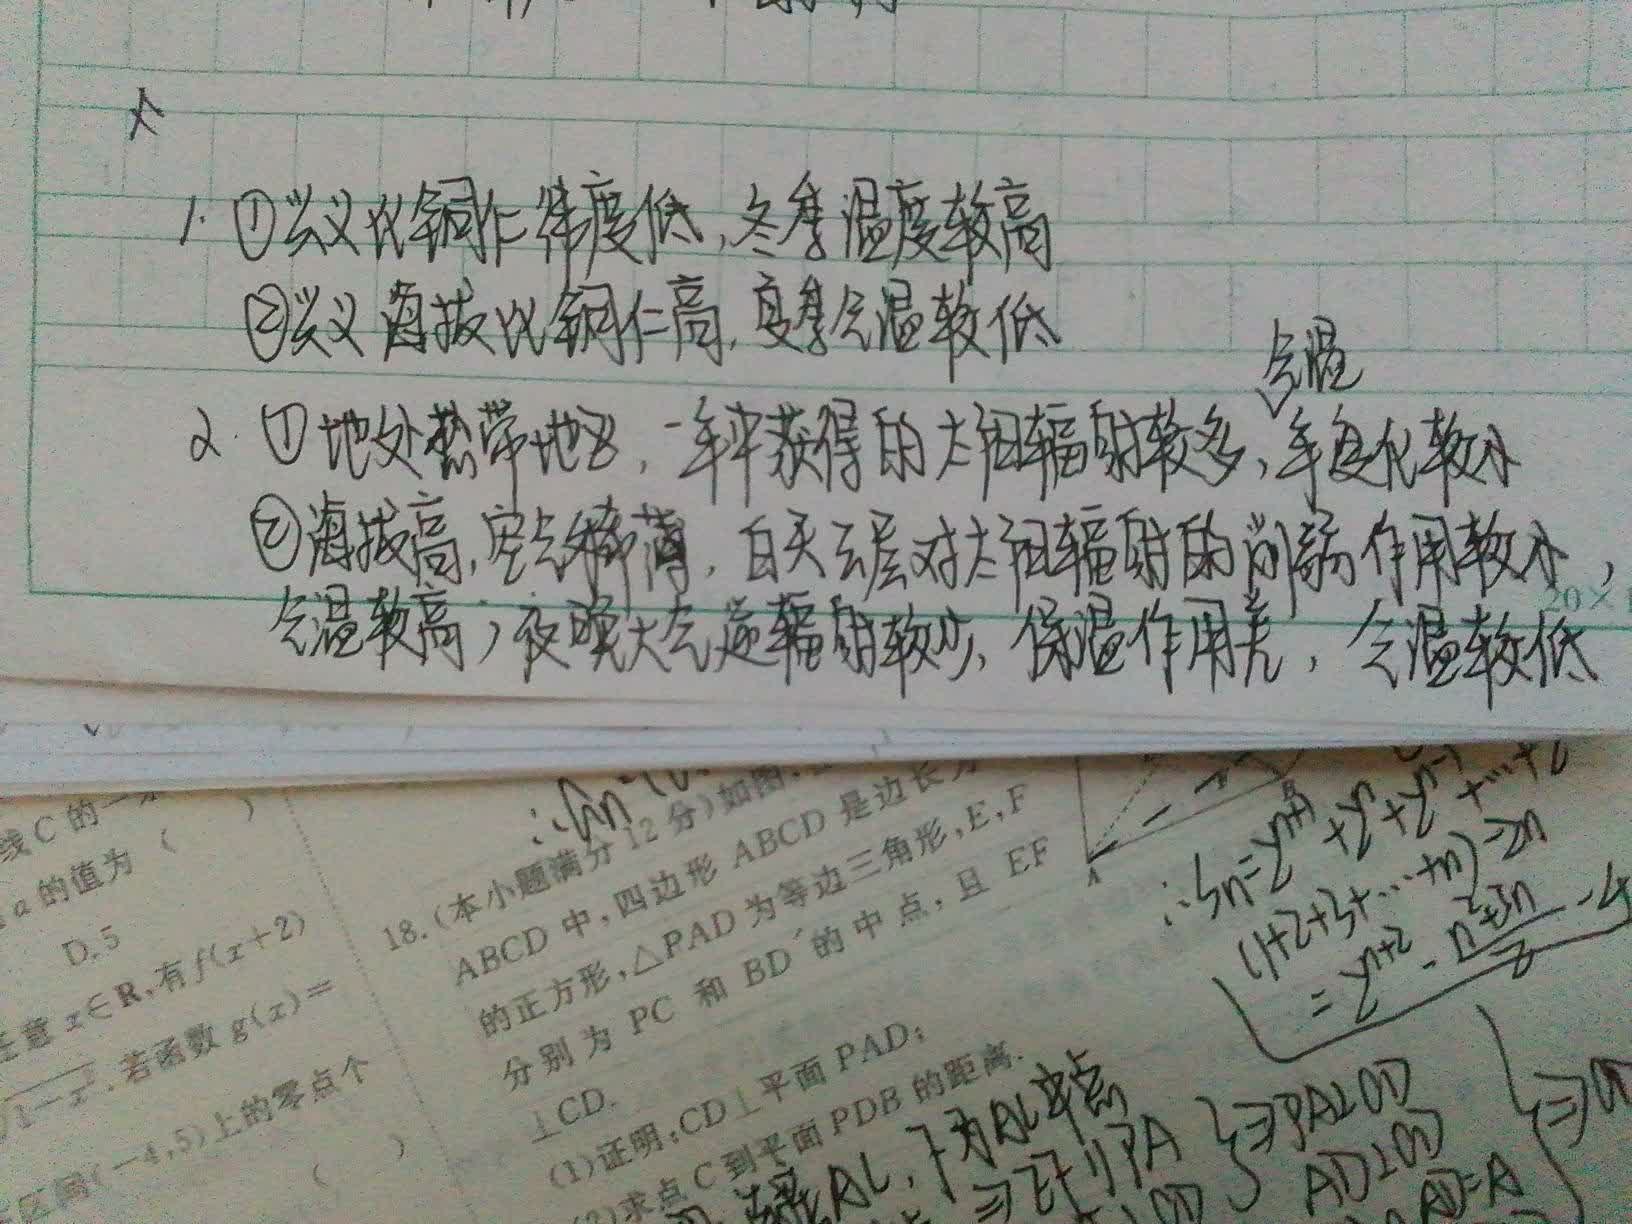 1. ①兴义比铜仁纬度低,冬季温度较高
②兴义海拔比铜仁高,夏季气温较低
气温
2. ①地处热带地区,一年中获得的太阳辐射较多,年变化较小
②海拔高,空气稀薄,白天云层对太阳辐射的削弱作用较小,
20×
气温较高;夜晚大气逆辐射较少,保温作用差,气温较低
线C的一
a的值为 ( )
D.5
意x∈R,有f(x+2)
1-x².若函数g(x)=
区间(-4,5)上的零点个
( )
18.(本小题满分12分)如图,
ABCD中,四边形ABCD是边长为
的正方形,△PAD为等边三角形,E,F
分别为PC和BD的中点,且EF
⊥CD.
(1)证明:CD⊥平面PAD;
(2)求点C到平面PDB的距离.
A
B
(1+2+3+…+n)-2n